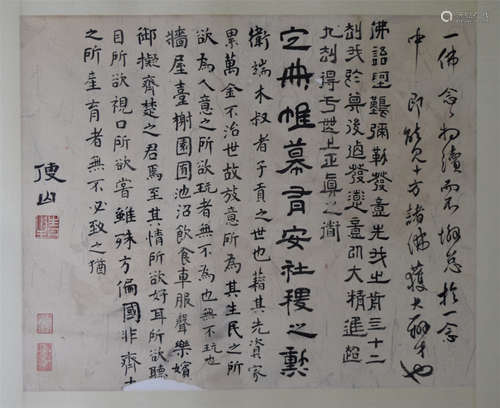 一佛念々相續而不懈怠於一念
中即能見十方諸佛獲大辯才也
佛語堅龔彌勒發意先我之前三十二
劫我於其後迺發意即大精進超
九劫得于無上正真之道
定册帷幕有安社稷之勲
衛端木叔者子貢之世也藉其先資家
累萬金不治世故放意所為其生民之所
欲為人意之所欲玩者無不為也無不玩也
牆屋臺榭園囿池沼飲食車服聲樂嬪
御擬齊楚之君焉至其情所欲好耳所欲聽
目所欲視口所欲嘗雖殊方偏國非齊土
之所產育者無不必致之猶
傅山